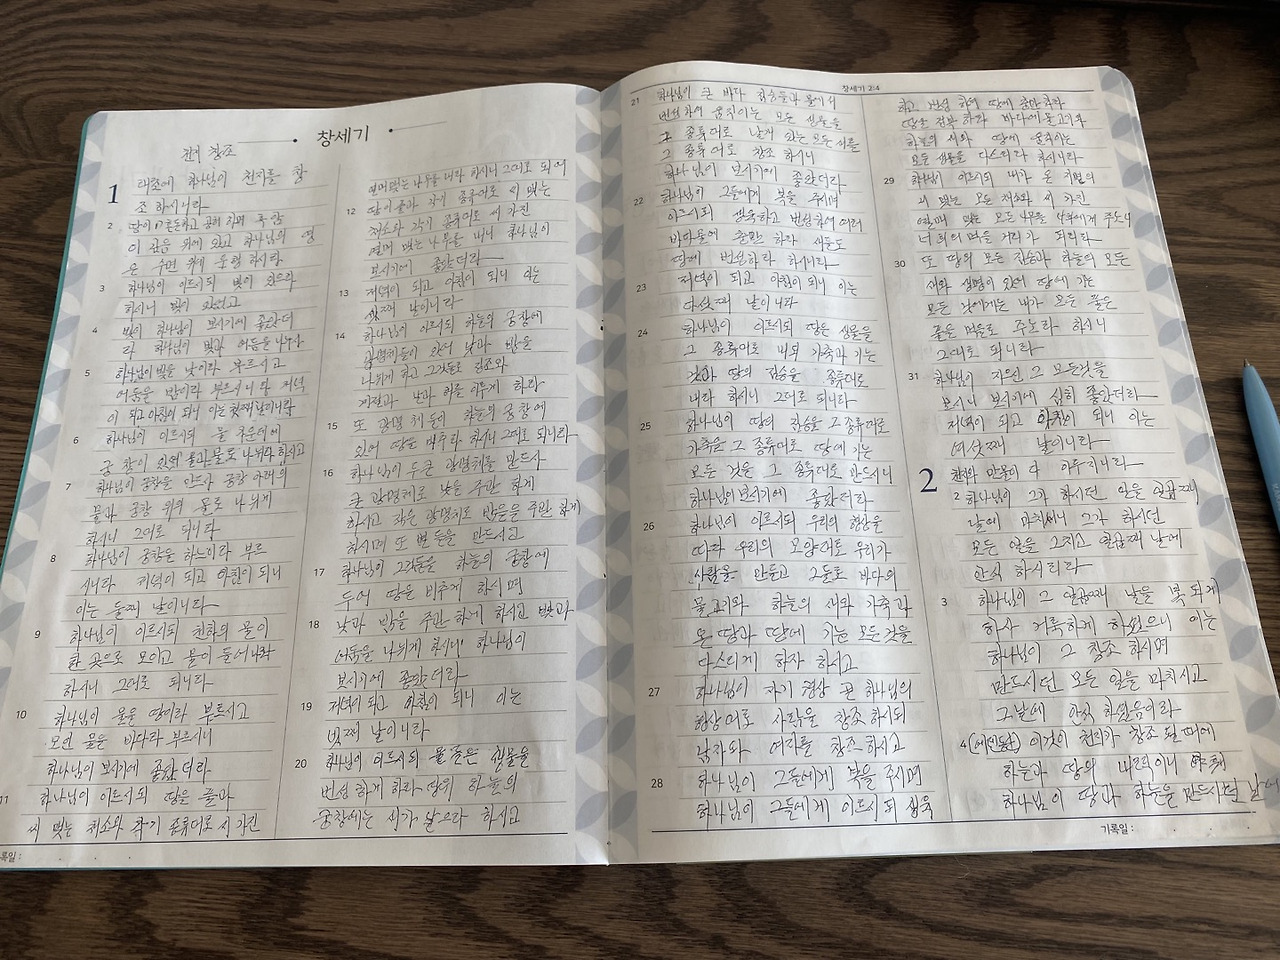 창세기
천지 창조
1
태초에 하나님이 천지를 창
조 하시니라
2 땅이 혼돈하고 공허 하며 흑암
이 깊음 위에 있고 하나님의 영
은 수면 위에 운행 하시다
3 하나님이 이르시되 빛이 있으라
하시니 빛이 있었고
4 빛이 하나님이 보시기에 좋았더
라 하나님이 빛과 어둠을 나누사
5 하나님이 빛을 낮이라 부르시고
어둠을 밤이라 부르시니라 저녁
이 되고 아침이 되니 이는 첫째 날이니라
6 하나님이 이르시되 물 가운데에
궁창이 있어 물과 물로 나뉘라 하시고
7 하나님이 궁창을 만드사 궁창 아래의
물과 궁창 위의 물로 나뉘게
하시니 그대로 되니라
8 하나님이 궁창을 하늘이라 부르
시니라 저녁이 되고 아침이 되니
이는 둘째 날이니라
9 하나님이 이르시되 천하의 물이
한 곳으로 모이고 뭍이 드러나라
하시니 그대로 되니라
10 하나님이 뭍을 땅이라 부르시고
모인 물을 바다라 부르시니
하나님이 보시기에 좋았더라
11 하나님이 이르시되 땅은 풀과
씨 맺는 채소와 각기 종류대로 씨 가진
기록일 :
열매 맺는 나무를 내라 하시니 그대로 되어
12 땅이 풀과 각기 종류대로 씨 맺는
채소와 각기 종류대로 씨 가진
열매 맺는 나무를 내니 하나님이
보시기에 좋았더라
13 저녁이 되고 아침이 되니 이는
셋째 날이니라
14 하나님이 이르시되 하늘의 궁창에
광명체들이 있어 낮과 밤을
나뉘게 하고 그것들로 징조와
계절과 날과 해를 이루게 하라
15 또 광명체들이 하늘의 궁창에
있어 땅을 비추라 하시니 그대로 되니라
16 하나님이 두 큰 광명체를 만드사
큰 광명체로 낮을 주관 하게
하시고 작은 광명체로 밤을을 주관 하게
하시며 또 별들을 만드시고
17 하나님이 그것들을 하늘의 궁창에
두어 땅을 비추게 하시며
18 낮과 밤을 주관 하게 하시고 빛과
어둠을 나뉘게 하시니 하나님이
보시기에 좋았더라
19 저녁이 되고 아침이 되니 이는
넷째 날이니라
20 하나님이 이르시되 물들은 생물을
번성 하게 하라 땅위 하늘의
궁창에는 새가 날으라 하시고
창세기 2:4
21 하나님이 큰 바다 짐승들과 물에서
번성하여 움직이는 모든 생물을
그 종류대로 날개 있는 모든 새를
그 종류대로 창조 하시니
하나님이 보시기에 좋았더라
22 하나님이 그들에게 복을 주시며
이르시되 생육하고 번성하여 여러
바다물에 충만 하라 새들도
땅에 번성하라 하시니라
23 저녁이 되고 아침이 되니 이는
다섯째 날이니라
24 하나님이 이르시되 땅은 생물을
그 종류대로 내되 가축과 기는
것과 땅의 짐승을 종류대로
내라 하시니 그대로 되니라
25 하나님이 땅의 짐승을 그 종류대로
가축을 그 종류대로 땅에 기는
모든 것을 그 종류대로 만드시니
하나님이 보시기에 좋았더라
26 하나님이 이르시되 우리의 형상을
따라 우리의 모양대로 우리가
사람을 만들고 그들로 바다의
물고기와 하늘의 새와 가축과
온 땅과 땅에 기는 모든 것을
다스리게 하자 하시고
27 하나님이 자기 형상 곧 하나님의
형상대로 사람을 창조 하시되
남자와 여자를 창조 하시고
28 하나님이 그들에게 복을 주시며
하나님이 그들에게 이르시되 생육
하고 번성 하여 땅에 충만하라
땅을 정복 하라 바다에 물고기와
하늘의 새와 땅에 움직이는
모든 생물을 다스리라 하시니라
29 하나님이 이르시되 내가 온 지면의
씨 맺는 모든 채소와 씨 가진
열매 맺는 모든 나무를 너희에게 주노니
너희의 먹을 거리가 되리라
30 또 땅의 모든 짐승과 하늘의 모든
새와 생명이 있어 땅에 기는
모든 것에게는 내가 모든 푸른
풀을 먹을로 주노라 하시니
그대로 되니라
31 하나님이 지으신 그 모든것을
보시니 보시기에 심히 좋았더라
저녁이 되고 아침이 되니 이는
여섯째 날이니라
2 천지와 만물이 다 이루지니라
2 하나님이 그가 하시던 일을 일곱째
날에 마치시니 그가 하시던
모든 일을 그치고 일곱째 날에
안식 하시니라
3 하나님이 그 일곱째 날을 복 되게
하사 거룩하게 하셨으니 이는
하나님이 그 창조 하시며
만드시던 모든 일을 마치시고
그날에 안식 하셨음이라
4 (에덴동산) 이것이 천지가 창조 될 때에
하늘과 땅의 내력이니 여호와
하나님이 땅과 하늘을 만드시던 날에
기록일 :